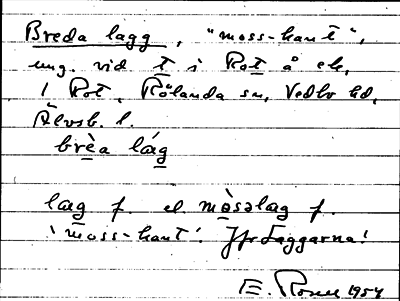 Breda lagg, "moss-kant",
ung. vid t i Rot å ek.
1 Rot, Rölanda sn, Vedbo hd,
Älvsb. l.
brèa lág
læg f. el. mòsəlæg f.
'moss-kant'. Jfr Laggarna!
E. 1954